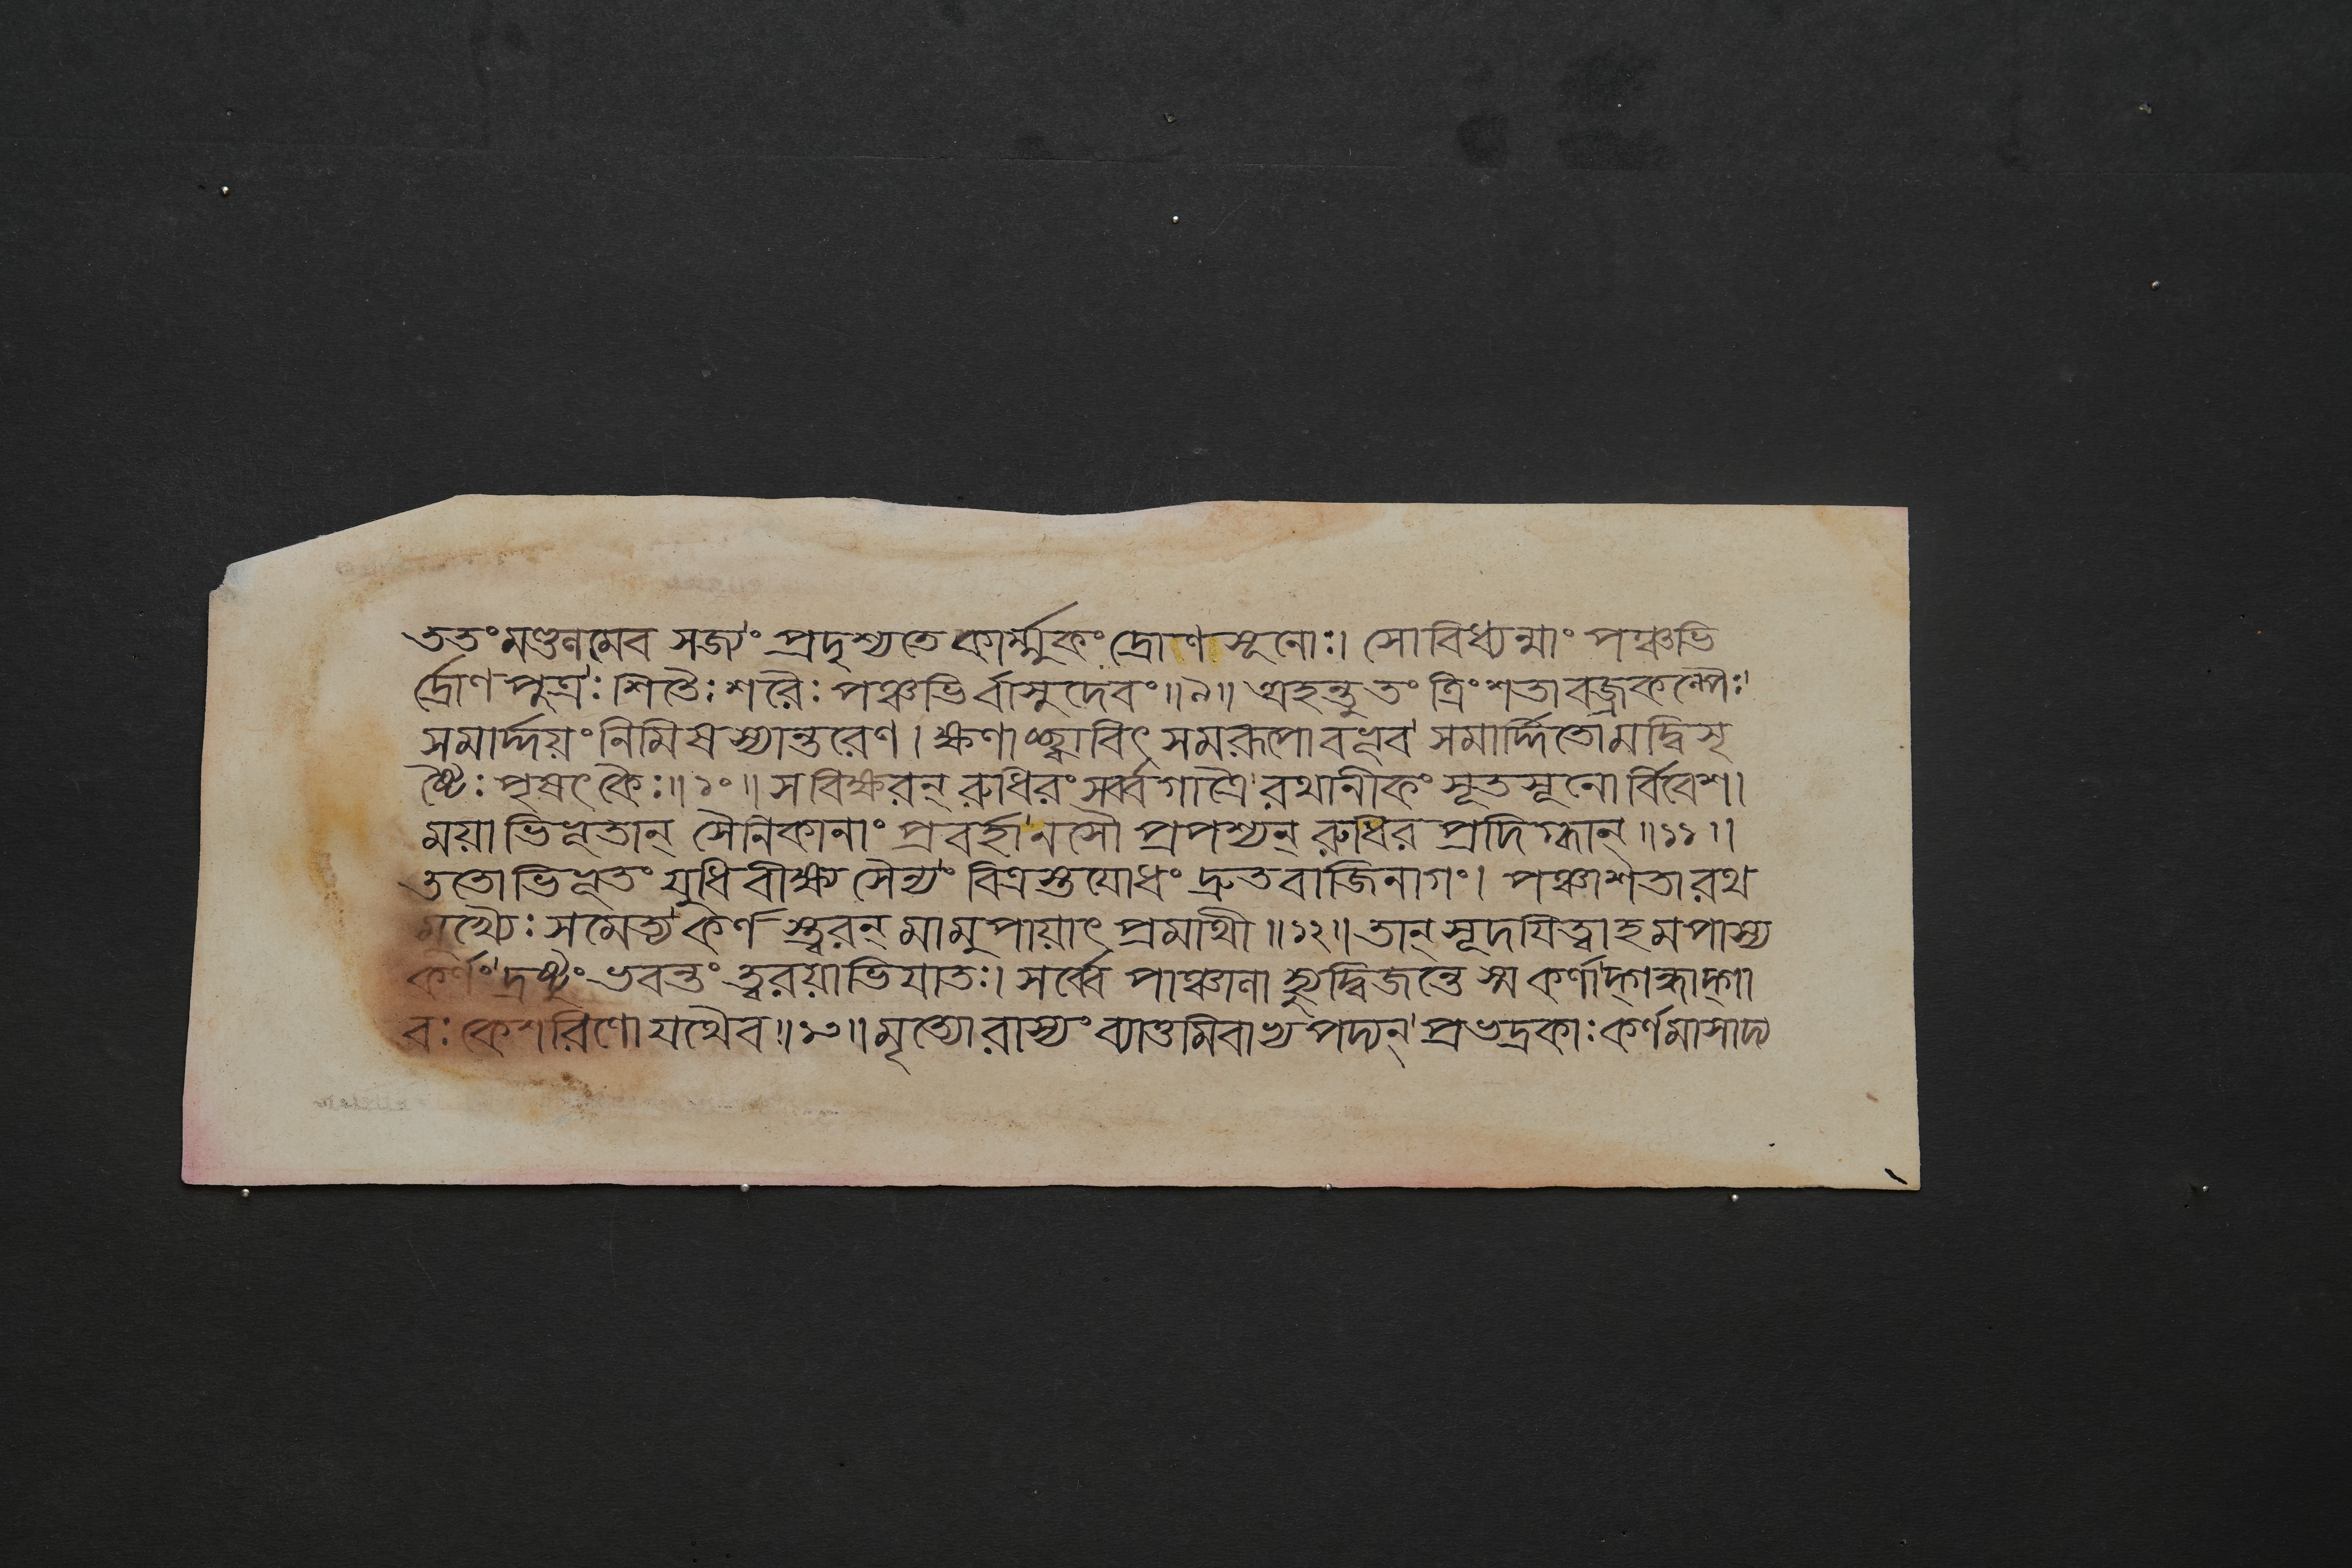 ততং মণ্ডলমেব সজ্যং প্রদৃশ্যতে কার্ম্মুকং দ্রোণসূনোঃ। সোবিধ্যন্মাং পঞ্চভি
র্দ্রোণপুত্রঃ শিতৈঃ শরৈঃ পঞ্চভির্বাসুদেবং॥৯॥ অহন্তু তং ত্রিংশতা বজ্রকল্পৈঃ
সমার্দ্দয়ং নিমিষস্যান্তরেণ। ক্ষণাচ্ছ্বাবিৎ সমরূপো বভূব সমার্দ্দিতো মদ্বিসৃ
ষ্টৈঃ পৃষৎকৈঃ॥১০॥ স বিক্ষরন্ রুধিরং সর্ব্বগাত্রৈ রথানীকং সূতসূনোর্বিবেশ।
ময়াভিভূতান্ সৈনিকানাং প্রবর্হানসৌ প্রপশ্যন্ রুধিরপ্রদিগ্ধান্॥১১॥
ততোভিভূতং যুধি বীক্ষ্য সৈন্যং বিত্রস্তযোধং দ্রুতবাজিনাগং। পঞ্চাশতা রথ
মুখ্যৈঃ সমেত্য কর্ণস্ত্বরন্ মামুপায়াৎ প্রমাথী॥১২॥ তান্ সূদয়িত্বাহমপাস্য
কর্ণং দ্রষ্টুং ভবন্তং ত্বরয়াভিযাতঃ। সর্ব্বে পাঞ্চালা হ্যুদ্বিজন্তে স্ম কর্ণাদ্গন্ধাদ্গা
বঃ কেশরিণো যথৈব॥১৩॥ মৃত্যোরাস্যং ব্যাত্তমিবাভ্যপদ্যন্ প্রভদ্রকাঃ কর্ণমাসাদ্য